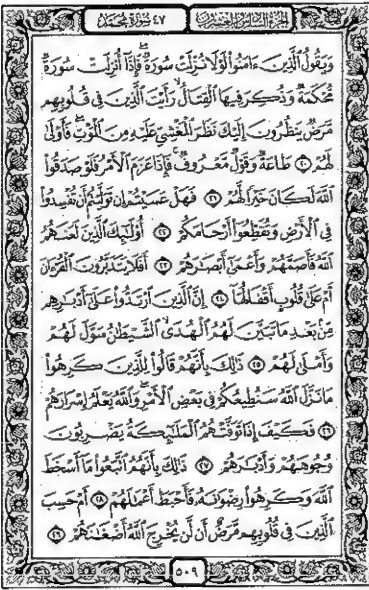 الجزء السادس والعشرون ٤٧ سورة محمد
وَيَقُولُ الَّذِينَ ءَامَنُوا لَوْلَا نُزِّلَتْ سُورَةٌ فَإِذَا أُنزِلَتْ سُورَةٌ
مُّحْكَمَةٌ وَذُكِرَ فِيهَا الْقِتَالُ رَأَيْتَ الَّذِينَ فِي قُلُوبِهِم
مَّرَضٌ يَنظُرُونَ إِلَيْكَ نَظَرَ الْمَغْشِيِّ عَلَيْهِ مِنَ الْمَوْتِ فَأَوْلَى
لَهُمْ ٢٠ طَاعَةٌ وَقَوْلٌ مَّعْرُوفٌ فَإِذَا عَزَمَ الْأَمْرُ فَلَوْ صَدَقُوا
اللَّهَ لَكَانَ خَيْرًا لَّهُمْ ٢١ فَهَلْ عَسَيْتُمْ إِن تَوَلَّيْتُمْ أَن تُفْسِدُوا
فِي الْأَرْضِ وَتُقَطِّعُوا أَرْحَامَكُمْ ٢٢ أُولَٰئِكَ الَّذِينَ لَعَنَهُمُ
اللَّهُ فَأَصَمَّهُمْ وَأَعْمَى أَبْصَارَهُمْ ٢٣ أَفَلَا يَتَدَبَّرُونَ الْقُرْءَانَ
أَمْ عَلَى قُلُوبٍ أَقْفَالُهَا ٢٤ إِنَّ الَّذِينَ ارْتَدُّوا عَلَى أَدْبَارِهِم
مِّن بَعْدِ مَا تَبَيَّنَ لَهُمُ الْهُدَى الشَّيْطَانُ سَوَّلَ لَهُمْ
وَأَمْلَى لَهُمْ ٢٥ ذَٰلِكَ بِأَنَّهُمْ قَالُوا لِلَّذِينَ كَرِهُوا
مَا نَزَّلَ اللَّهُ سَنُطِيعُكُمْ فِي بَعْضِ الْأَمْرِ وَاللَّهُ يَعْلَمُ إِسْرَارَهُمْ
٢٦ فَكَيْفَ إِذَا تَوَفَّتْهُمُ الْمَلَائِكَةُ يَضْرِبُونَ
وُجُوهَهُمْ وَأَدْبَارَهُمْ ٢٧ ذَٰلِكَ بِأَنَّهُمُ اتَّبَعُوا مَا أَسْخَطَ
اللَّهَ وَكَرِهُوا رِضْوَانَهُ فَأَحْبَطَ أَعْمَالَهُمْ ٢٨ أَمْ حَسِبَ
الَّذِينَ فِي قُلُوبِهِم مَّرَضٌ أَن لَّن يُخْرِجَ اللَّهُ أَضْغَانَهُمْ ٢٩
٥٠٩